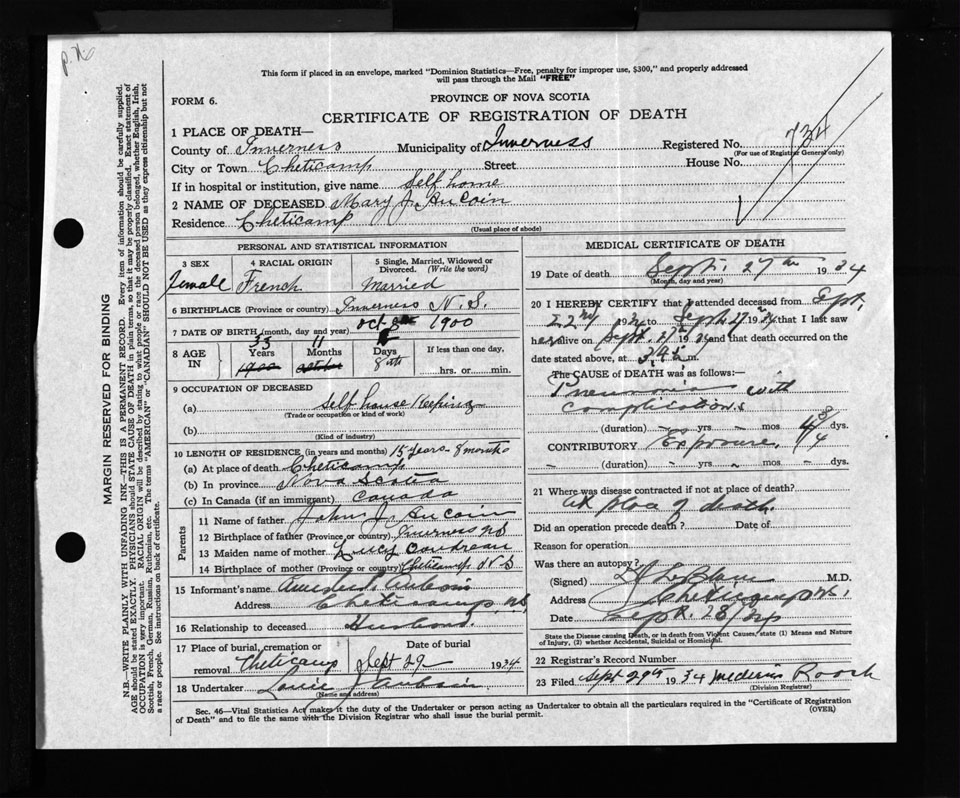 P.N.
This form if placed in an envelope, marked "Dominion Statistics—Free, penalty for improper use, $300," and properly addressed
will pass through the Mail "FREE"
FORM 6.
PROVINCE OF NOVA SCOTIA
CERTIFICATE OF REGISTRATION OF DEATH
734
1 PLACE OF DEATH—
County of Inverness Municipality of Inverness Registered No.
(For use of Registrar General only)
City or Town Cheticamp Street House No.
If in hospital or institution, give name Self home
2 NAME OF DECEASED Mary J. AuCoin
Residence Cheticamp
(Usual place of abode)
PERSONAL AND STATISTICAL INFORMATION
3 SEX 4 RACIAL ORIGIN 5 Single, Married, Widowed or
Divorced. (Write the word)
Female French Married
6 BIRTHPLACE (Province or country) Inverness N.S.
7 DATE OF BIRTH (month, day and year) Oct 8 1900
8 AGE IN 33 Years 11 Months Days 8th If less than one day,
hrs. or min.
9 OCCUPATION OF DECEASED
(a) self house Keeping
(Trade or occupation or kind of work)
(b)
(Kind of industry)
10 LENGTH OF RESIDENCE (in years and months) 15 years 8 months
(a) At place of death Cheticamp
(b) In province Nova Scotia
(c) In Canada (if an immigrant) Canada
Parents
11 Name of father John J. AuCoin
12 Birthplace of father (Province or country) Inverness NS
13 Maiden name of mother Lucy Coudreau
14 Birthplace of mother (Province or country) Cheticamp N.S
15 Informant's name Auboin
Address Cheticamp NS
16 Relationship to deceased Husband
17 Place of burial, cremation or
removal Cheticamp
Date of burial
Sept 29 1934
18 Undertaker Louie J Auboin
(Name and address)
MEDICAL CERTIFICATE OF DEATH
19 Date of death Sept. 27th 1934
(Month, day and year)
20 I HEREBY CERTIFY that I attended deceased from Sept.
22nd 1934 to Sept. 27 1934 that I last saw
her alive on Sept. 27 1934 and that death occurred on the
date stated above, at 3.45 m.
The CAUSE OF DEATH was as follows:—
Pneumonia with
complications
(duration) yrs. mos. dys.
CONTRIBUTORY Exposure.
(duration) yrs. mos. dys.
21 Where was disease contracted if not at place of death?
At place of death.
Did an operation precede death? Date of
Reason for operation
Was there an autopsy?
(Signed) LeBlanc M.D.
Address Cheticamp N.S.
Date Sept. 28/34
State the Disease causing Death, or in death from Violent Causes, state (1) Means and Nature
of Injury, (2) whether Accidental, Suicidal or Homicidal.
22 Registrar's Record Number
23 Filed Sept 29th 1934 Roach
(Division Registrar)
Sec. 46—Vital Statistics Act makes it the duty of the Undertaker or person acting as Undertaker to obtain all the particulars required in the "Certificate of Registration
of Death" and to file the same with the Division Registrar who shall issue the burial permit.
(OVER)
MARGIN RESERVED FOR BINDING
N.B.—WRITE PLAINLY WITH UNFADING INK—THIS IS A PERMANENT RECORD. Every item of information should be carefully supplied.
AGE should be stated EXACTLY. PHYSICIANS should STATE CAUSE OF DEATH in plain terms, so that it may be properly classified. Exact statement of
OCCUPATION is very important. RACIAL ORIGIN will be described by stating to what people or race the deceased person belonged, whether English, Irish,
Scottish, French, German, Russian, Ruthenian, etc. The terms "AMERICAN" or "CANADIAN" SHOULD NOT BE USED as they express citizenship but not
a race or people. See instructions on back of certificate.